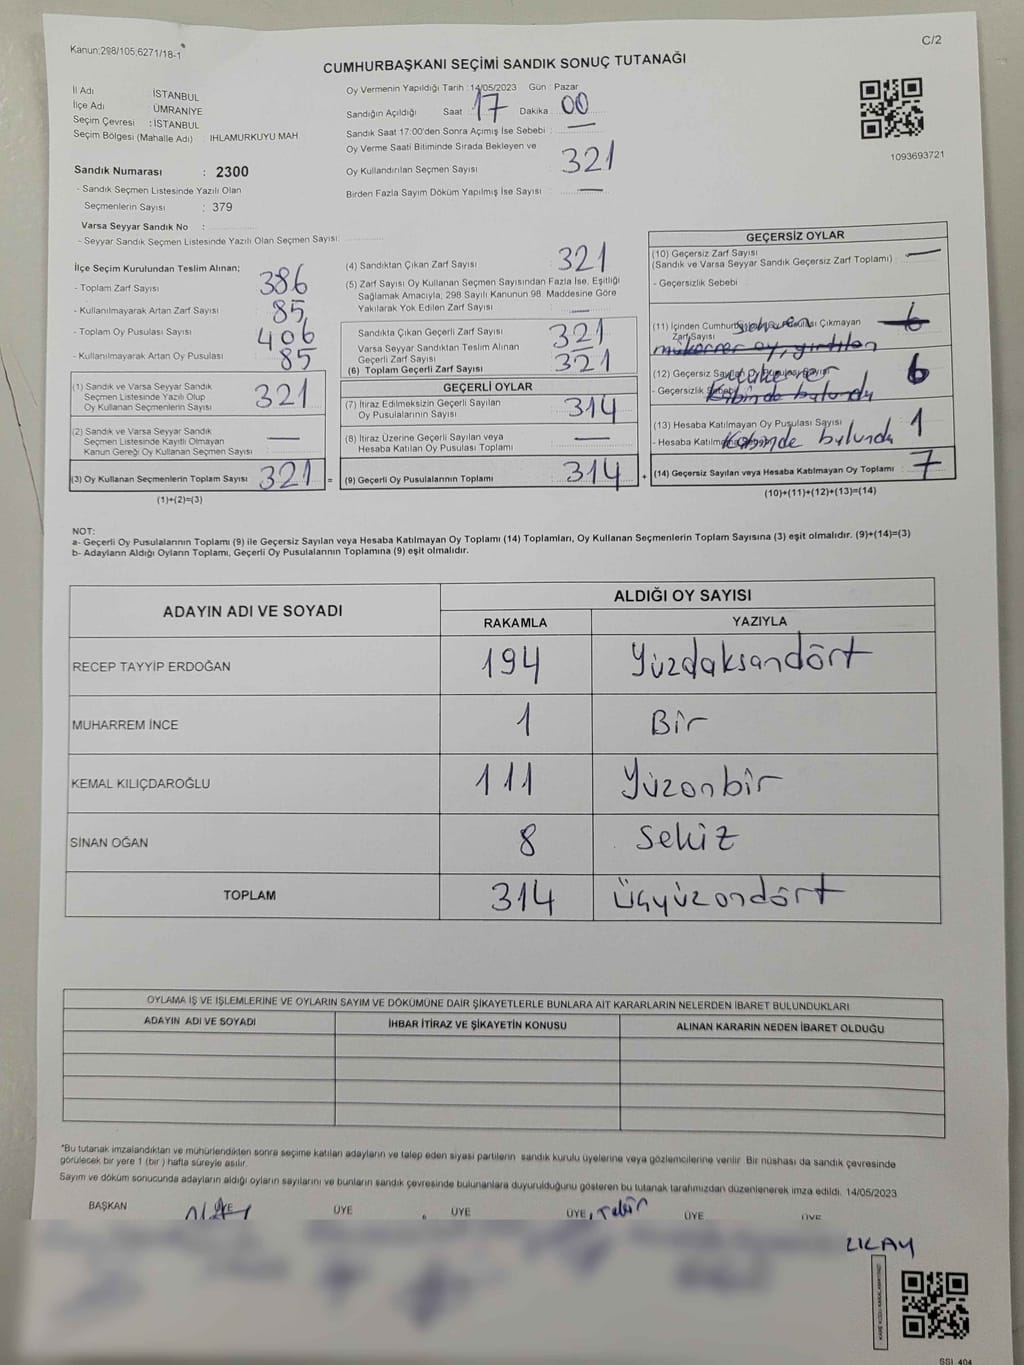 Kanun;298/105,6271/18-1
C/2
CUMHURBAŞKANI SEÇİMİ SANDIK SONUÇ TUTANAĞI
İl Adı İSTANBUL
İlçe Adı ÜMRANİYE
Seçim Çevresi : İSTANBUL
Seçim Bölgesi (Mahalle Adı) : IHLAMURKUYU MAH.
Sandık Numarası : 2300
- Sandık Seçmen Listesinde Yazılı Olan
Seçmenlerin Sayısı : 379
Varsa Seyyar Sandık No :
- Seyyar Sandık Seçmen Listesinde Yazılı Olan Seçmen Sayısı:
Oy Vermenin Yapıldığı Tarih : 14/05/2023 Gün : Pazar
Sandığın Açıldığı Saat : 17 Dakika : 00
Sandık Saat 17:00'den Sonra Açımış İse Sebebi : —
Oy Verme Saati Bitiminde Sırada Bekleyen ve
Oy Kullandırılan Seçmen Sayısı : 321
Birden Fazla Sayım Döküm Yapılmış İse Sayısı : —
1093693721
İlçe Seçim Kurulundan Teslim Alınan;
- Toplam Zarf Sayısı : 386
- Kullanılmayarak Artan Zarf Sayısı : 85
- Toplam Oy Pusulası Sayısı : 406
- Kullanılmayarak Artan Oy Pusulası : 85
(1) Sandık ve Varsa Seyyar Sandık
Seçmen Listesinde Yazılı Olup
Oy Kullanan Seçmenlerin Sayısı 321
(2) Sandık ve Varsa Seyyar Sandık
Seçmen Listesinde Kayıtlı Olmayan
Kanun Gereği Oy Kullanan Seçmen Sayısı : —
(3) Oy Kullanan Seçmenlerin Toplam Sayısı 321
(1)+(2)=(3)
(4) Sandıktan Çıkan Zarf Sayısı : 321
(5) Zarf Sayısı Oy Kullanan Seçmen Sayısından Fazla İse, Eşitliği
Sağlamak Amacıyla; 298 Sayılı Kanunun 98. Maddesine Göre
Yakılarak Yok Edilen Zarf Sayısı : —
Sandıkta Çıkan Geçerli Zarf Sayısı : 321
Varsa Seyyar Sandıktan Teslim Alınan
Geçerli Zarf Sayısı : —
(6) Toplam Geçerli Zarf Sayısı : 321
GEÇERLİ OYLAR
(7) İtiraz Edilmeksizin Geçerli Sayılan
Oy Pusulalarının Sayısı : 314
(8) İtiraz Üzerine Geçerli Sayılan veya
Hesaba Katılan Oy Pusulası Toplamı : —
= (9) Geçerli Oy Pusulalarının Toplamı : 314 +
GEÇERSİZ OYLAR
(10) Geçersiz Zarf Sayısı : —
(Sandık ve Varsa Seyyar Sandık Geçersiz Zarf Toplamı)
- Geçersizlik Sebebi :
(11) İçinden Çıkmayan 6
Zarf Sayısı
mükerrer oy, yırtılan
(12) Geçersiz 6
- Geçersizlik Kabinde bulundu
(13) Hesaba Katılmayan Oy Pusulası Sayısı 1
- Hesaba Kabinde bulundu
(14) Geçersiz Sayılan veya Hesaba Katılmayan Oy Toplamı : 7
(10)+(11)+(12)+(13)=(14)
NOT:
a- Geçerli Oy Pusulalarının Toplamı (9) ile Geçersiz Sayılan veya Hesaba Katılmayan Oy Toplamı (14) Toplamları, Oy Kullanan Seçmenlerin Toplam Sayısına (3) eşit olmalıdır. (9)+(14)=(3)
b- Adayların Aldığı Oyların Toplamı, Geçerli Oy Pusulalarının Toplamına (9) eşit olmalıdır.
ADAYIN ADI VE SOYADI ALDIĞI OY SAYISI
RAKAMLA YAZIYLA
RECEP TAYYİP ERDOĞAN 194 Yüzdaksandört
MUHARREM İNCE 1 Bir
KEMAL KILIÇDAROĞLU 111 Yüzonbir
SİNAN OĞAN 8 Sekiz
TOPLAM 314 Üçyüzondört
OYLAMA İŞ VE İŞLEMLERİNE VE OYLARIN SAYIM VE DÖKÜMÜNE DAİR ŞİKAYETLERLE BUNLARA AİT KARARLARIN NELERDEN İBARET BULUNDUKLARI
ADAYIN ADI VE SOYADI İHBAR İTİRAZ VE ŞİKAYETİN KONUSU ALINAN KARARIN NEDEN İBARET OLDUĞU
*Bu tutanak imzalandıktan ve mühürlendikten sonra seçime katılan adayların ve talep eden siyasi partilerin sandık kurulu üyelerine veya gözlemcilerine verilir. Bir nüshası da sandık çevresinde
görülecek bir yere 1 (bir) hafta süreyle asılır.
Sayım ve döküm sonucunda adayların aldığı oyların sayılarını ve bunların sandık çevresinde bulunanlara duyurulduğunu gösteren bu tutanak tarafımızdan düzenlenerek imza edildi. 14/05/2023
BAŞKAN ÜYE ÜYE ÜYE ÜYE ÜYE ÜYE
SSI 404